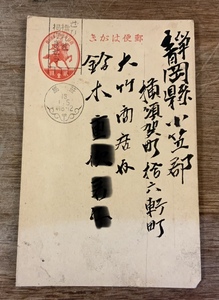 郵便はがき
静岡縣小笠郡
横須賀町拾六軒町
大竹商店内
鈴木